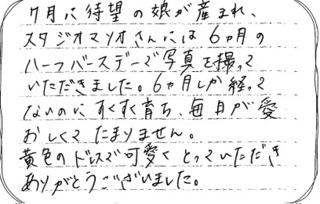 7月に待望の娘が産まれ、
スタジオマリオさんには6ヵ月の
ハーフバースデーで写真を撮って
いただきました。6ヵ月しか経って
ないのにすくすく育ち、毎日が愛
おしくてたまりません。
黄色のドレスで可愛くとっていただき
ありがとうございました。